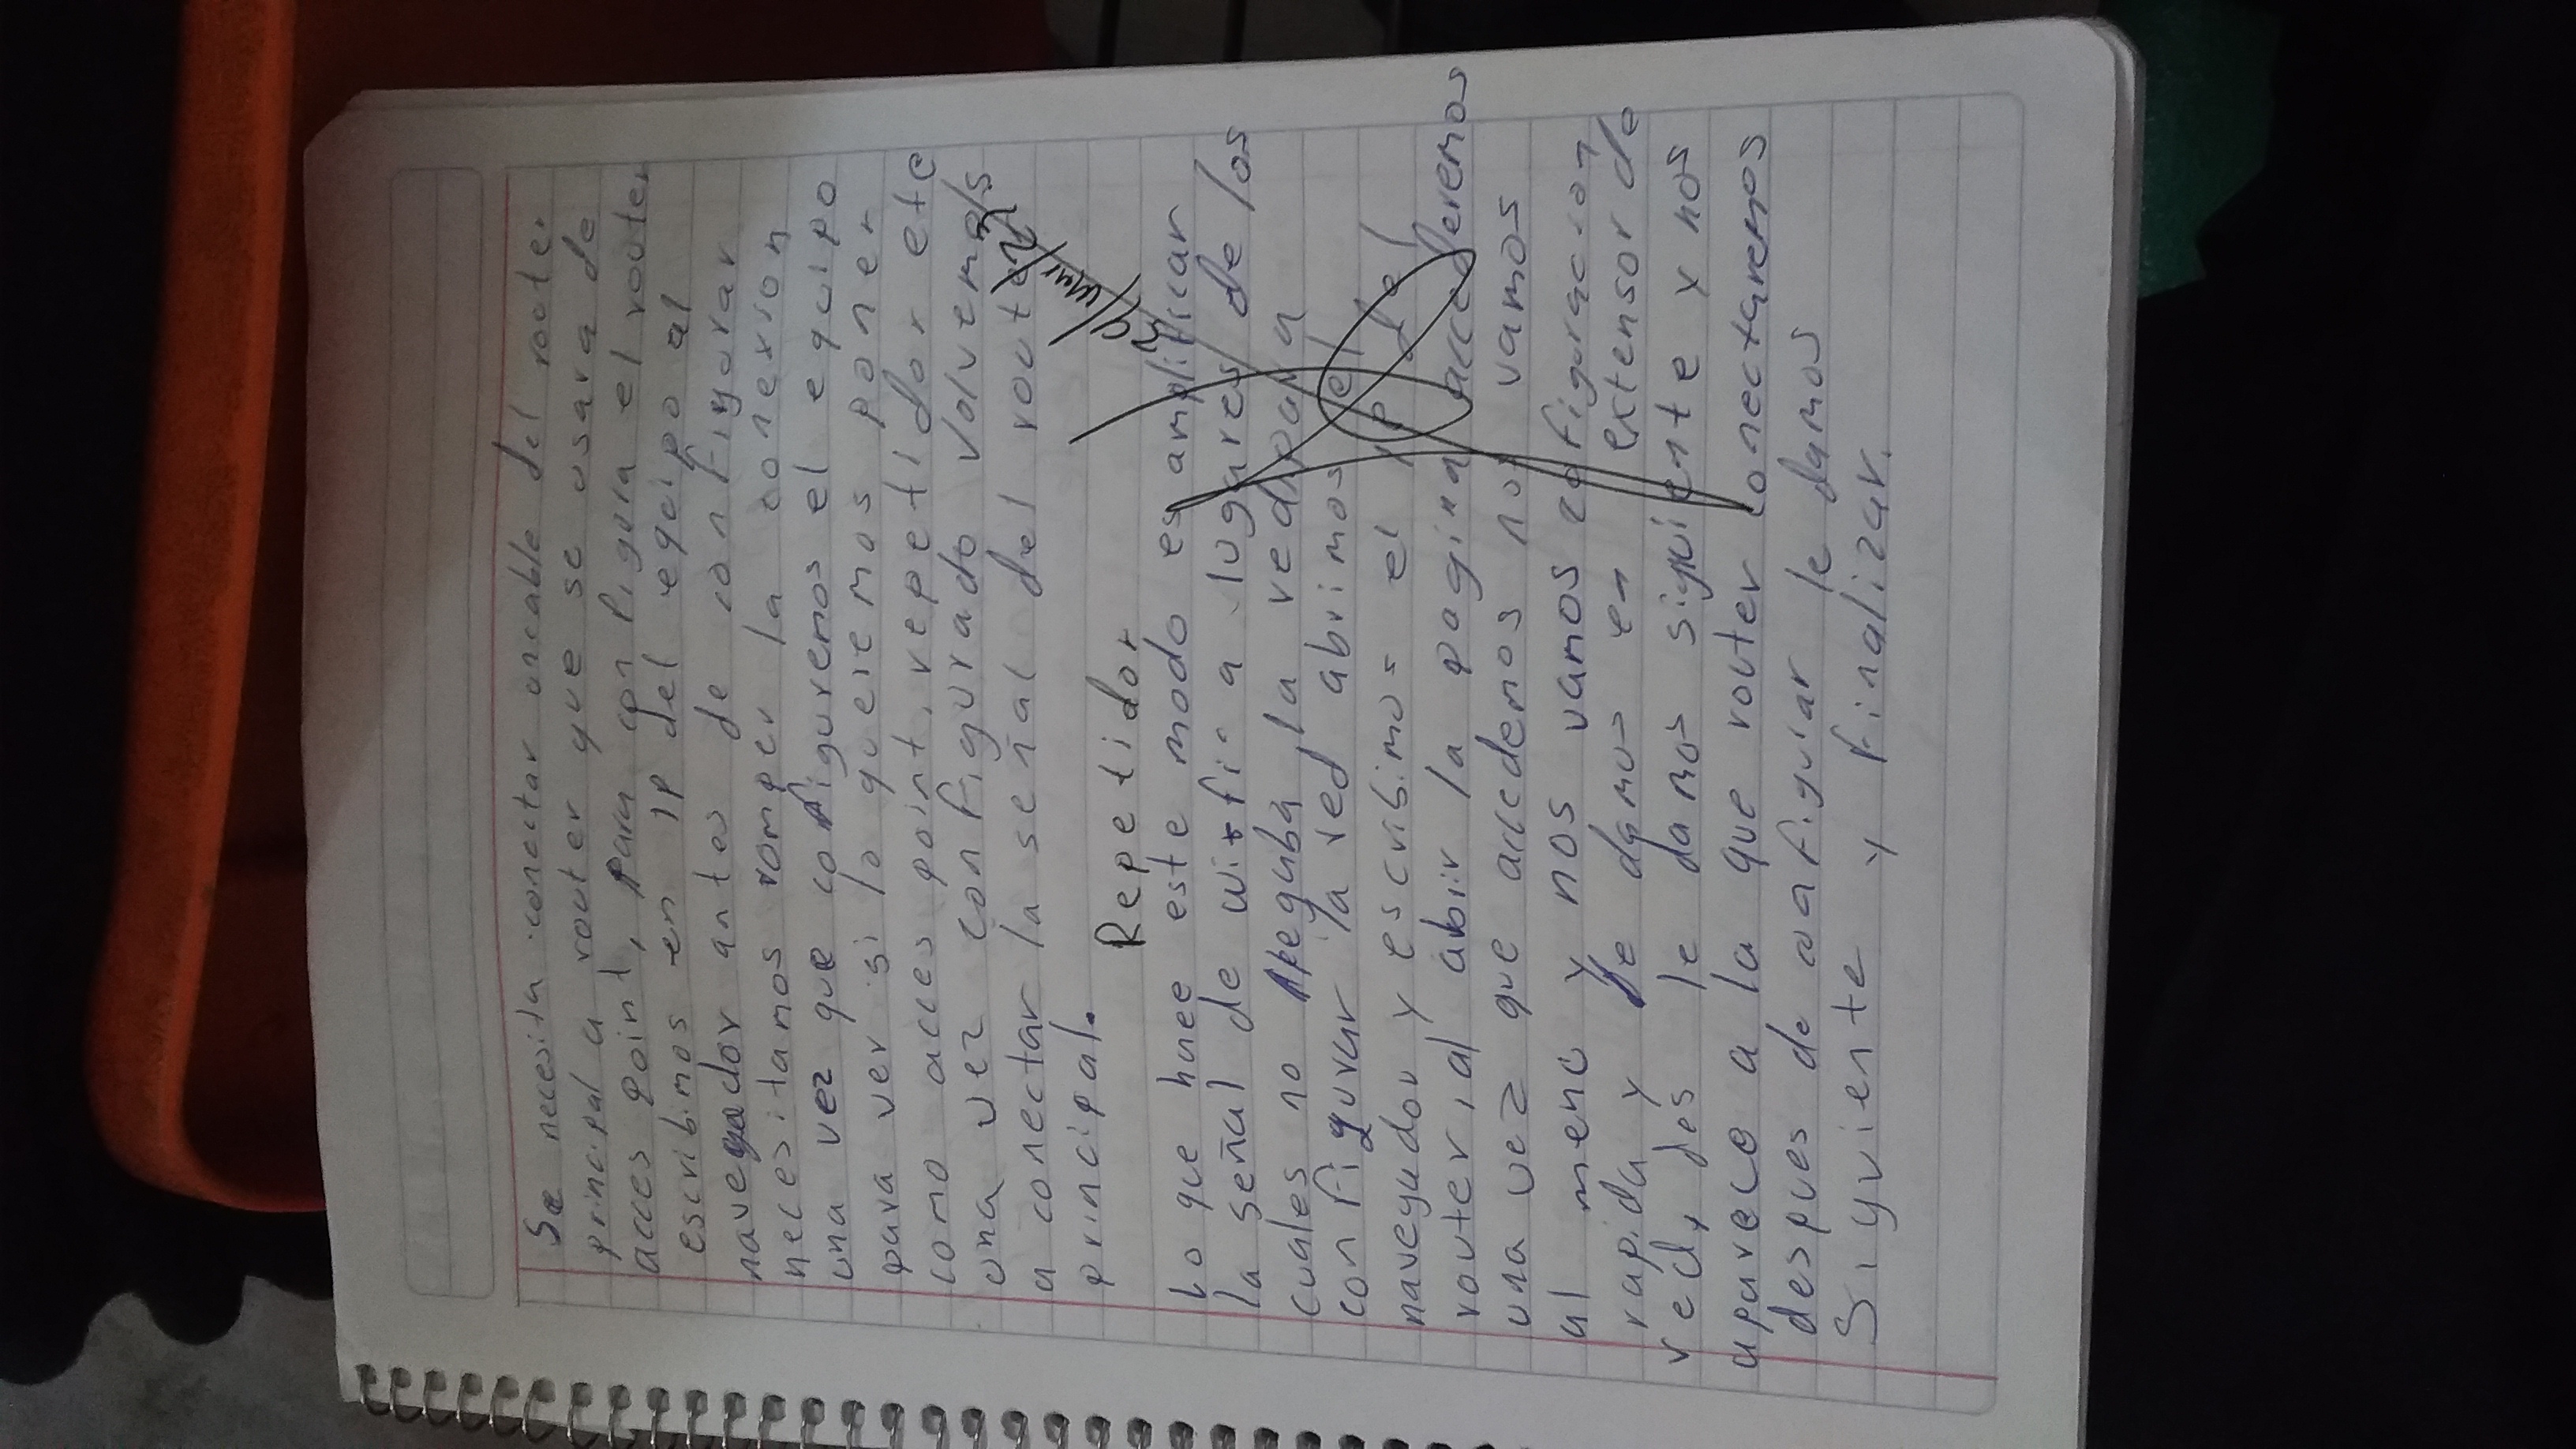 Se necesita conectar uncable del router
principal a router que se usara de
acces point, para configura el router
escribimos en IP del equipo al
navegador antes de configurar
necesitamos romper la conexion
una vez que cofiguremos el equipo
para ver si lo queremos poner
como acces point, repetidor etc
una vez configurado volvemos
a conectar la señal del router
principal.
29/Mar/23
Repetidor
Lo que hace este modo es amplificar
la señal de wi-fi a lugares de los
cuales no llegaba la red, para
configurar la red abrimos el
navegador y escribimos el IP del
router, al abrir la pagina accederemos
una vez que accedemos nos vamos
al menu y nos vamos cofiguracion
rapida y le damos en extensor de
red, des le damos siguiente y nos
aparece a la que router conectaremos
despues de configurar le damos
Siguiente y finalizar.